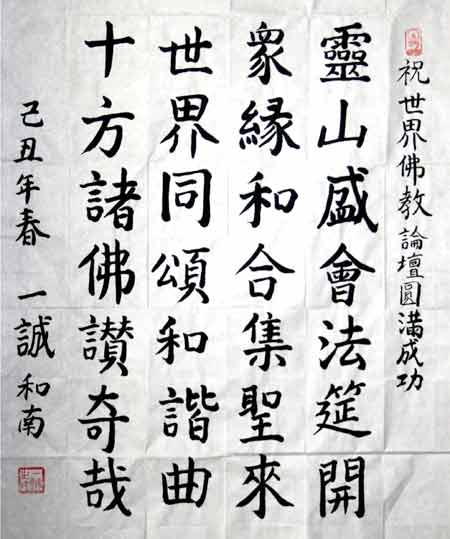 祝世界佛教論壇圓滿成功
靈山盛會法筵開
衆緣和合集聖來
世界同頌和諧曲
十方諸佛讚奇哉
己丑年春 一誠和南